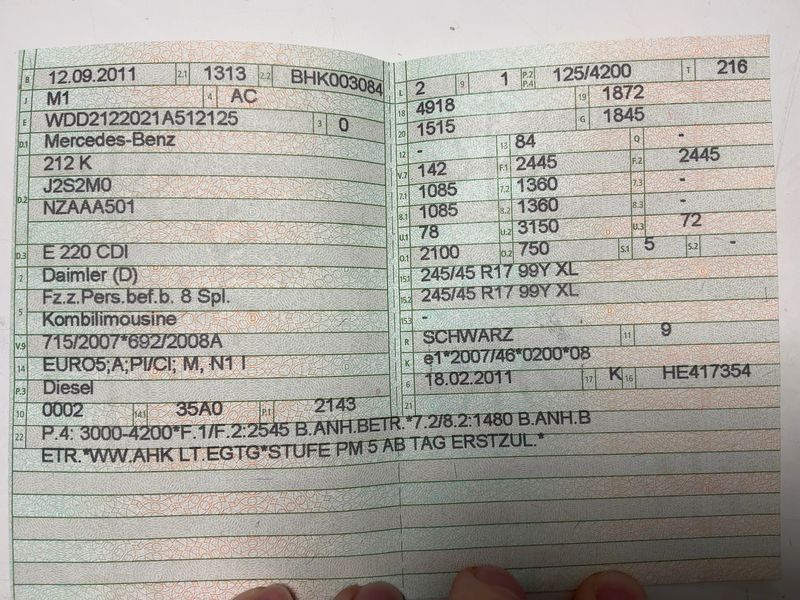 B 12.09.2011 2.1 1313 2.2 BHK003084
J M1 4 AC
E WDD2122021A512125 3 0
D.1 Mercedes-Benz
212 K
D.2 J2S2M0
NZAAA501
D.3 E 220 CDI
2 Daimler (D)
5 Fz.z.Pers.bef.b. 8 Spl.
Kombilimousine
V.9 715/2007*692/2008A
14 EURO5;A;PI/CI; M, N1 I
P.3 Diesel
10 0002 14.1 35A0 P.1 2143
L 2 9 1 P.2 P.4 125/4200 T 216
18 4918 19 1872
20 1515 G 1845
12 - 13 84 Q -
V.7 142 F.1 2445 F.2 2445
7.1 1085 7.2 1360 7.3 -
8.1 1085 8.2 1360 8.3 -
U.1 78 U.2 3150 U.3 72
O.1 2100 O.2 750 S.1 5 S.2 -
15.1 245/45 R17 99Y XL
15.2 245/45 R17 99Y XL
15.3 -
R SCHWARZ 11 9
K e1*2007/46*0200*08
6 18.02.2011 17 K 16 HE417354
21
22 P.4: 3000-4200*F.1/F.2:2545 B.ANH.BETR.*7.2/8.2:1480 B.ANH.B
ETR.*WW.AHK LT.EGTG*STUFE PM 5 AB TAG ERSTZUL.*